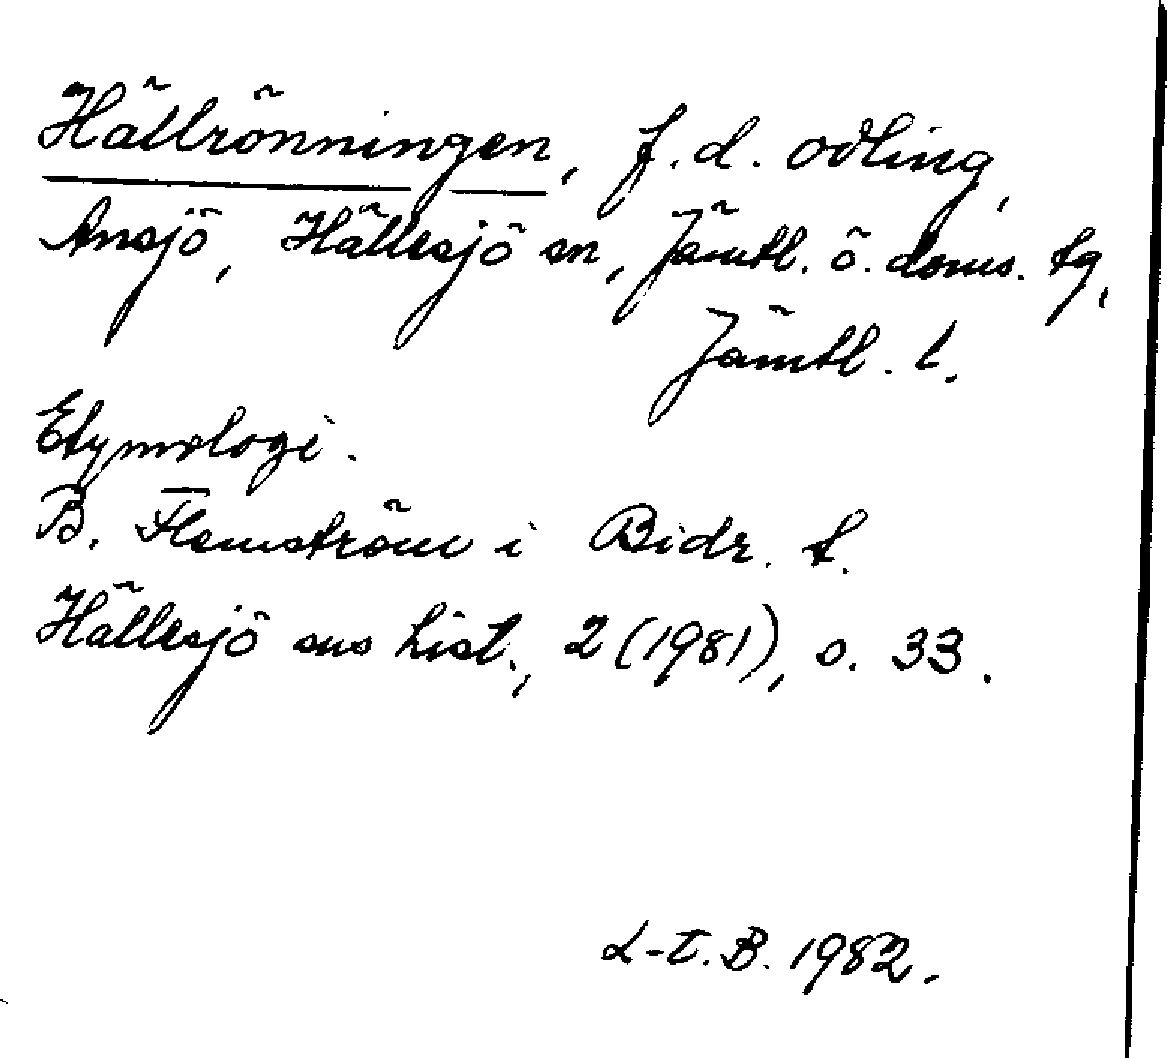 Hällrönningen, f.d. odling,
Ansjö, Hällesjö sn, Jämtl. ö. doms. tg,
Jämtl. l.
Etymologi.
B. Flemström i Bidr. t.
Hällesjö sns hist., 2 (1981), s. 33.
L-t. B. 1982.